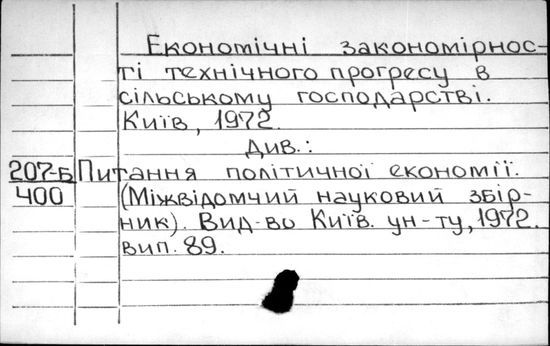 Економічні закономірнос-
ті технічного прогресу в
сільському господарстві.
Київ, 1972.
Див.:
207-Б Питання політичної економії.
400 (Міжвідомчий науковий збір-
ник). Вид-во Київ. ун-ту, 1972.
вип. 89.